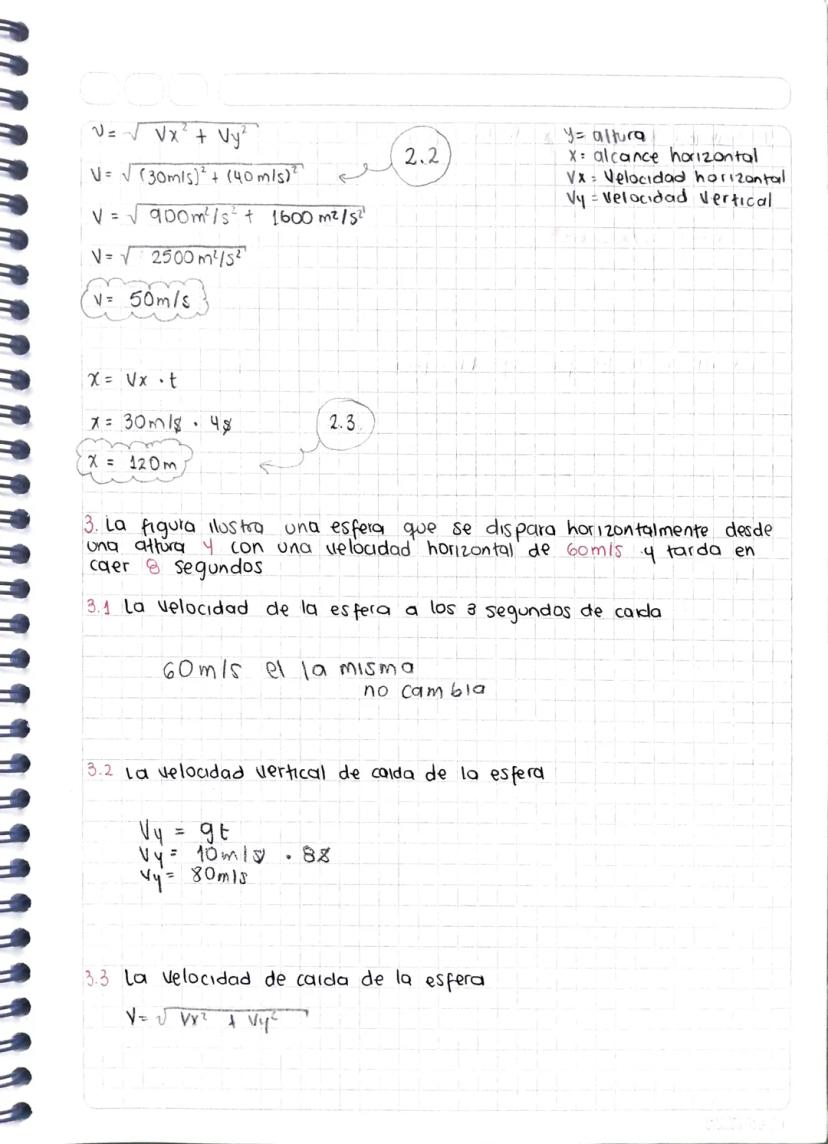 V = √ Vx² + Vy²
V = √(30m/s)² + (40m/s)²
2.2
V = √900m²/s² + 1600 m²/s²
V = √ 2500 m²/s²
V = 50m/s
y = altura
x = alcance horizontal
Vx = Velocidad horizontal
Vy = Velocidad Vertical
x = Vx · t
x = 30m/s · 4s
2.3.
x = 120m
3. La figura ilustra una esfera que se dispara horizontalmente desde
una altura y con una velocidad horizontal de 60m/s y tarda en
caer 8 segundos
3.1 La velocidad de la esfera a los 3 segundos de caida
60m/s el la misma
no cambia
3.2 La velocidad vertical de caida de la esfera
Vy = gt
Vy = 10m/s · 8s
Vy = 80m/s
3.3 La velocidad de caida de la esfera
V = √ Vx² + Vy²